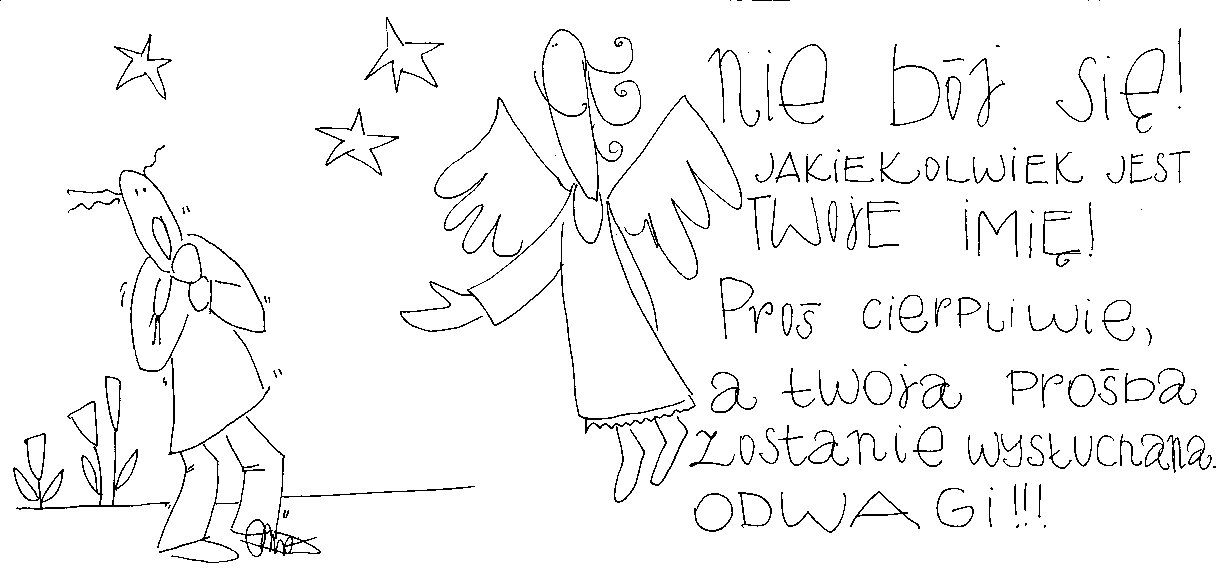 nie bój się!
JAKIEKOLWIEK JEST
TWOJE IMIĘ!
Proś cierpliwie,
a twoja prośba
zostanie wysłuchana.
ODWAGI!!!